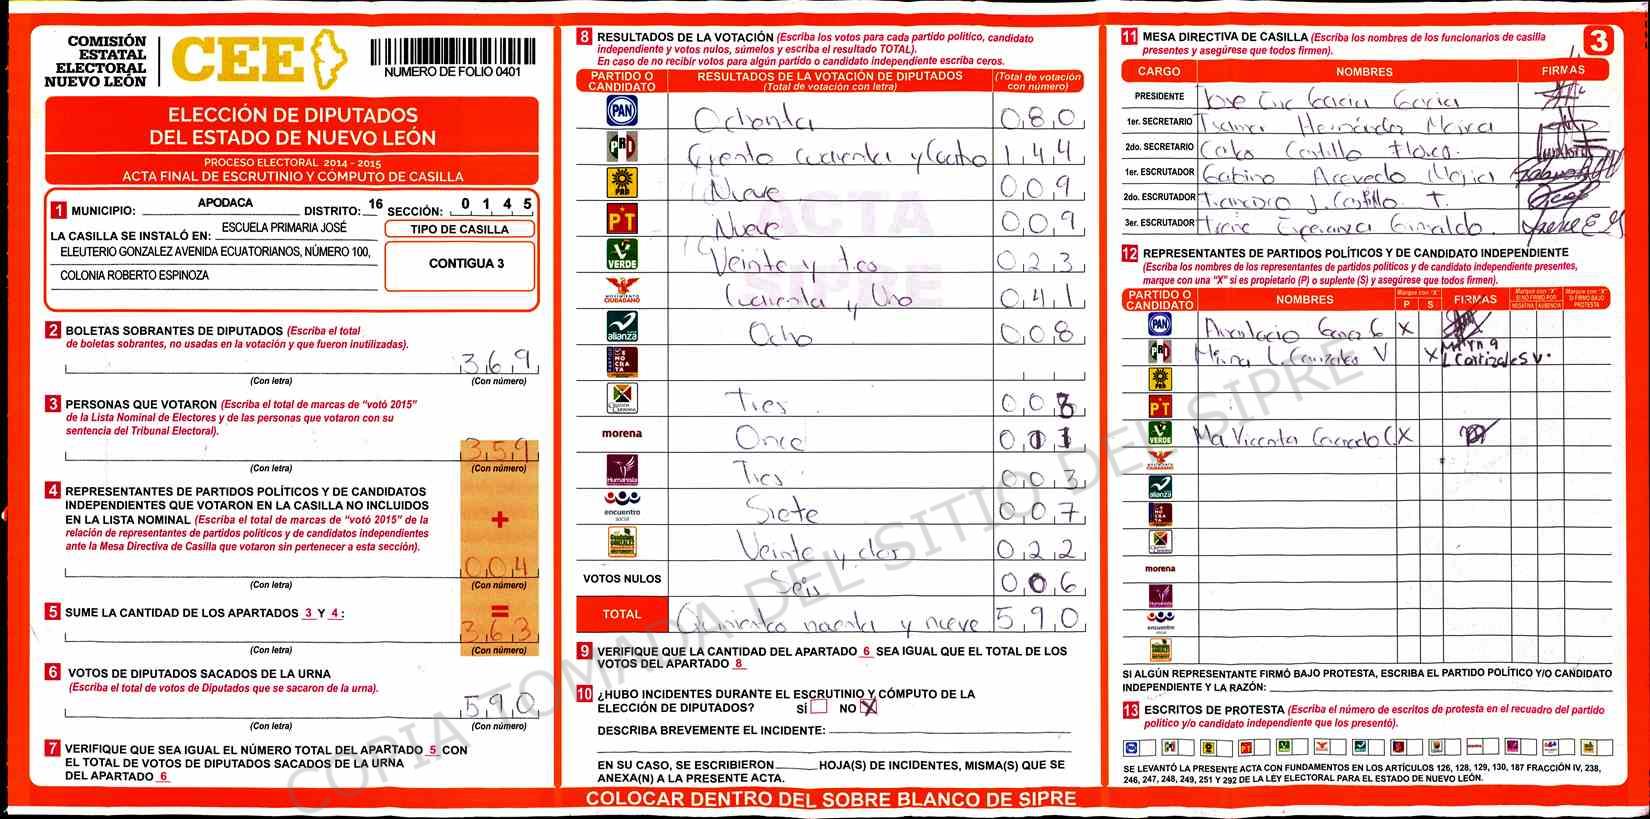 COMISIÓN
ESTATAL
ELECTORAL
NUEVO LEÓN
CEE
NUMERO DE FOLIO 0401
ELECCIÓN DE DIPUTADOS
DEL ESTADO DE NUEVO LEÓN
PROCESO ELECTORAL 2014 - 2015
ACTA FINAL DE ESCRUTINIO Y CÓMPUTO DE CASILLA
1 MUNICIPIO: APODACA DISTRITO: 16 SECCIÓN: 0 1 4 5
LA CASILLA SE INSTALÓ EN: ESCUELA PRIMARIA JOSÉ
ELEUTERIO GONZALEZ AVENIDA ECUATORIANOS, NÚMERO 100,
COLONIA ROBERTO ESPINOZA
TIPO DE CASILLA
CONTIGUA 3
2 BOLETAS SOBRANTES DE DIPUTADOS (Escriba el total
de boletas sobrantes, no usadas en la votación y que fueron inutilizadas).
369
(Con letra) (Con número)
3 PERSONAS QUE VOTARON (Escriba el total de marcas de "votó 2015"
de la Lista Nominal de Electores y de las personas que votaron con su
sentencia del Tribunal Electoral).
359
(Con letra) (Con número)
4 REPRESENTANTES DE PARTIDOS POLÍTICOS Y DE CANDIDATOS
INDEPENDIENTES QUE VOTARON EN LA CASILLA NO INCLUIDOS
EN LA LISTA NOMINAL (Escriba el total de marcas de "votó 2015" de la
relación de representantes de partidos políticos y de candidatos independientes
ante la Mesa Directiva de Casilla que votaron sin pertenecer a esta sección).
+
004
(Con letra) (Con número)
5 SUME LA CANTIDAD DE LOS APARTADOS 3 Y 4:
=
363
(Con letra) (Con número)
6 VOTOS DE DIPUTADOS SACADOS DE LA URNA
(Escriba el total de votos de Diputados que se sacaron de la urna).
590
(Con letra) (Con número)
7 VERIFIQUE QUE SEA IGUAL EL NÚMERO TOTAL DEL APARTADO 5 CON
EL TOTAL DE VOTOS DE DIPUTADOS SACADOS DE LA URNA
DEL APARTADO 6
8 RESULTADOS DE LA VOTACIÓN (Escriba los votos para cada partido político, candidato
independiente y votos nulos, súmelos y escriba el resultado TOTAL).
En caso de no recibir votos para algún partido o candidato independiente escriba ceros.
PARTIDO O CANDIDATO RESULTADOS DE LA VOTACIÓN DE DIPUTADOS (Total de votación con letra) (Total de votación con número)
PAN Ochenta 080
PRI Ciento cuarenta y Cuatro 144
PRD Nueve 009
PT Nueve 009
VERDE Veinte y tres 023
MOVIMIENTO CIUDADANO Cuarenta y Uno 041
alianza Ocho 008
DEMOCRATA
Tres 003
morena Once 011
Humanista Tres 003
encuentro social Siete 007
Veinte y dos 022
VOTOS NULOS Seis 006
TOTAL Quinientos noventa y nueve 590
ACTA
SIPRE
9 VERIFIQUE QUE LA CANTIDAD DEL APARTADO 6 SEA IGUAL QUE EL TOTAL DE LOS
VOTOS DEL APARTADO 8
10 ¿HUBO INCIDENTES DURANTE EL ESCRUTINIO Y CÓMPUTO DE LA
ELECCIÓN DE DIPUTADOS? SÍ NO X
DESCRIBA BREVEMENTE EL INCIDENTE:
EN SU CASO, SE ESCRIBIERON HOJA(S) DE INCIDENTES, MISMA(S) QUE SE
ANEXA(N) A LA PRESENTE ACTA.
COLOCAR DENTRO DEL SOBRE BLANCO DE SIPRE
11 MESA DIRECTIVA DE CASILLA (Escriba los nombres de los funcionarios de casilla
presentes y asegúrese que todos firmen).
3
CARGO NOMBRES FIRMAS
PRESIDENTE Jose Garcia Garcia
1er. SECRETARIO Hernández
2do. SECRETARIO Castillo Flores
1er. ESCRUTADOR Gabino Acevedo Mejia
2do. ESCRUTADOR Francisco J. Castillo T.
3er. ESCRUTADOR Irene Esperanza Irene E
12 REPRESENTANTES DE PARTIDOS POLÍTICOS Y DE CANDIDATO INDEPENDIENTE
(Escriba los nombres de los representantes de partidos políticos y de candidato independiente presentes,
marque con una "X" si es propietario (P) o suplente (S) y asegúrese que todos firmen).
PARTIDO O CANDIDATO NOMBRES Marque con "X" P S FIRMAS Marque con "X" SI NO FIRMÓ POR NEGATIVA AUSENCIA Marque con "X" SI FIRMÓ BAJO PROTESTA
PAN X
PRI V X
PRD
PT
VERDE Ma Vicenta X
alianza
morena
encuentro
SI ALGÚN REPRESENTANTE FIRMÓ BAJO PROTESTA, ESCRIBA EL PARTIDO POLÍTICO Y/O CANDIDATO
INDEPENDIENTE Y LA RAZÓN:
13 ESCRITOS DE PROTESTA (Escriba el número de escritos de protesta en el recuadro del partido
político y/o candidato independiente que los presentó).
SE LEVANTÓ LA PRESENTE ACTA CON FUNDAMENTOS EN LOS ARTÍCULOS 126, 128, 129, 130, 187 FRACCIÓN IV, 238,
246, 247, 248, 249, 251 Y 292 DE LA LEY ELECTORAL PARA EL ESTADO DE NUEVO LEÓN.
COPIA TOMADA DEL SITIO DEL SIPRE